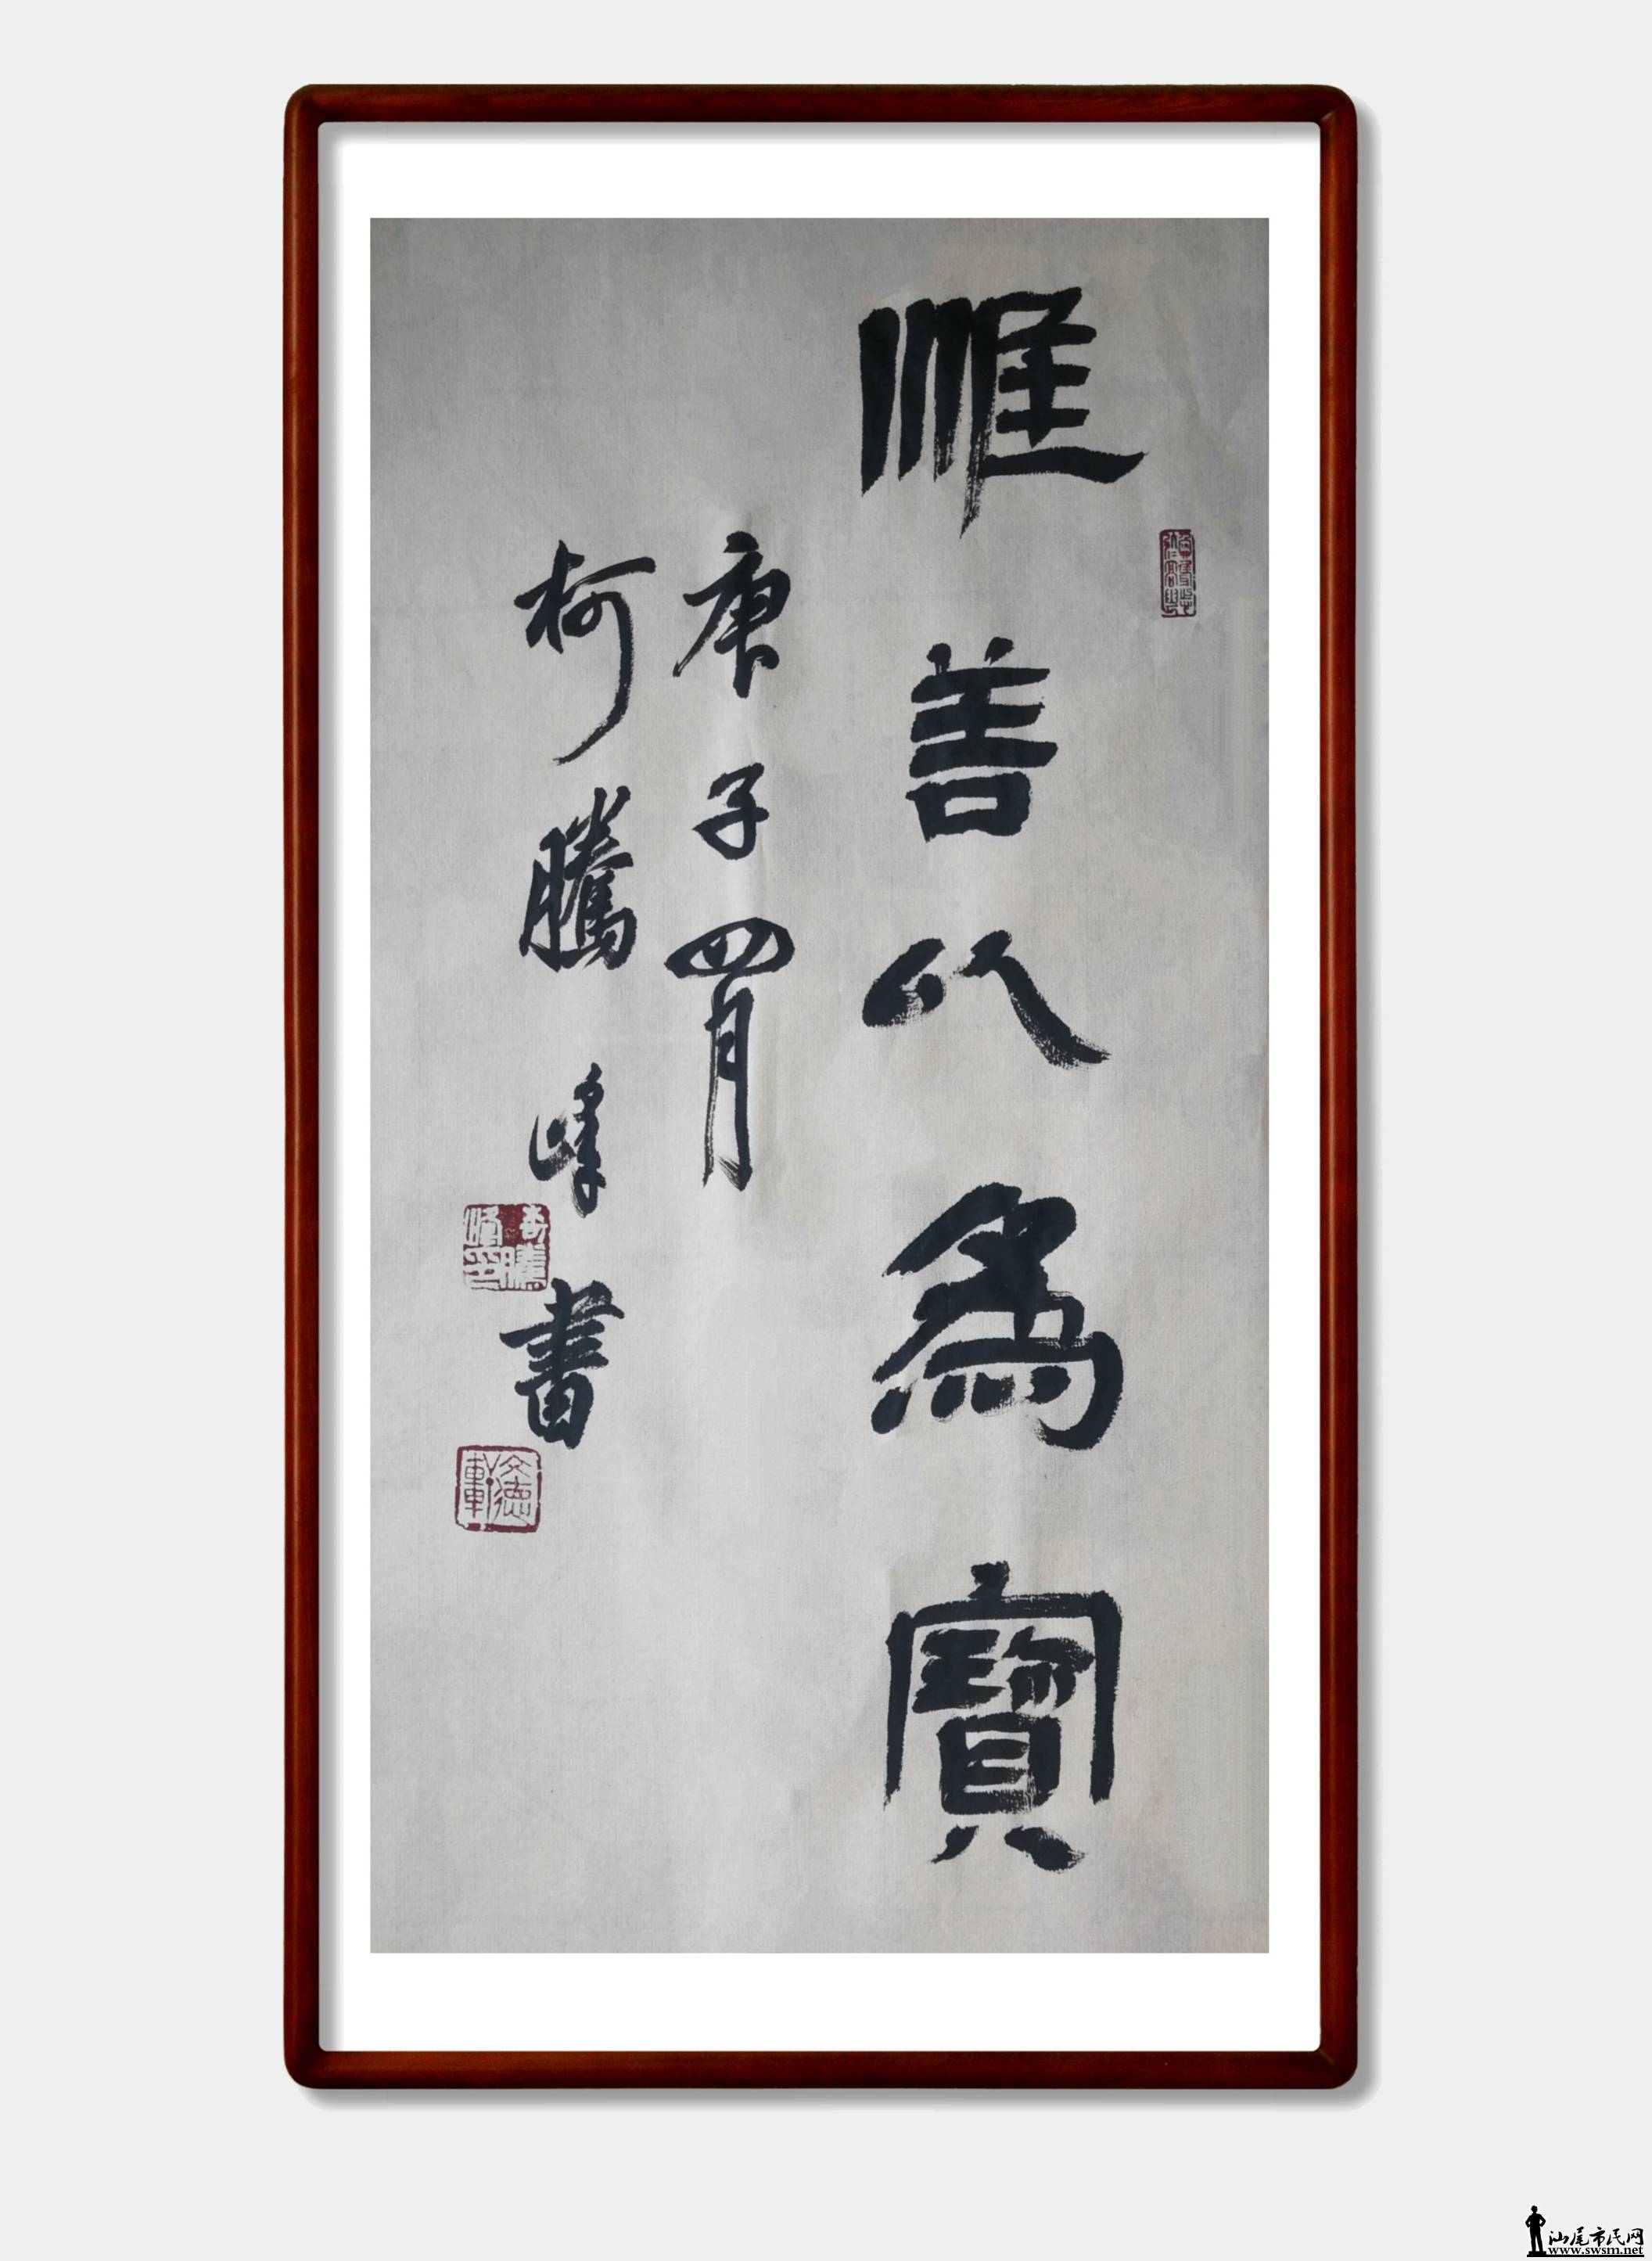 惟善以為寶
庚子四月
柯騰峰書
文德軒
汕尾市民网
www.swsm.net